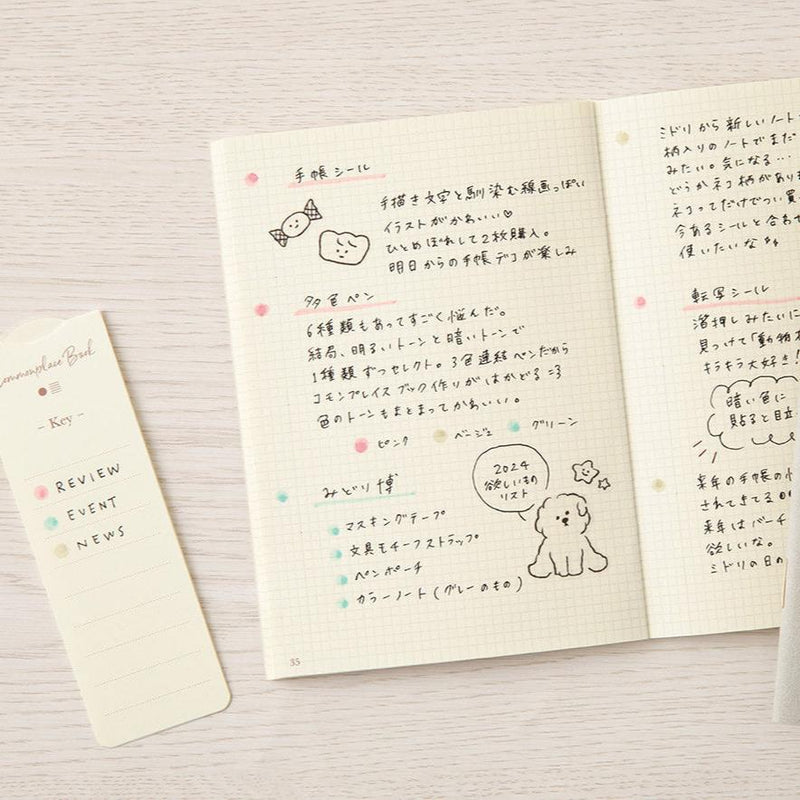 Commonplace Book
- Key -
REVIEW
EVENT
NEWS
手帳シール
手描き文字と馴染む線画っぽい
イラストがかわいい♡
ひとめぼれして2枚購入。
明日からの手帳デコが楽しみ
多色ペン
6種類もあってすごく悩んだ。
結局、明るいトーンと暗いトーンで
1種類ずつセレクト。3色連結ペンだから
コモンプレイスブック作りがはかどる
色のトーンもまとまってかわいい。
ピンク ベージュ グリーン
みどり博
マスキングテープ
文具モチーフストラップ
ペンポーチ
カラーノート(グレーのもの)
2024
欲しいもの
リスト
35
ミドリから新しいノート
柄入りのノートでまだ
みたい。気になる…
どうかネコ柄があり
ネコってだけでつい買
今あるシールと合わせ
使いたいな
転写シール
箔押しみたいに
見つけて「動物
キラキラ大好き!
暗い色に
貼ると目立
来年の手帳の
されてきてる
来年はバーチ
欲しいな。
ミドリの日の